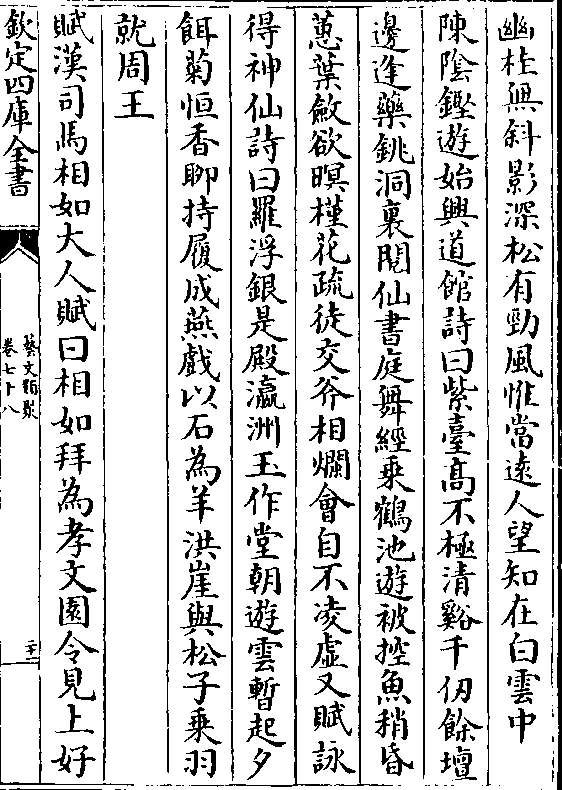 幽桂無斜影深松有勁風惟當遠人望知在白雲中
陳陰鏗遊始興道館詩曰紫臺髙不極清谿千仞餘壇
邊逢藥銚洞裏閱仙書庭舞經乗鶴池遊被控魚稍昏
蔥葉斂欲暝槿花疏徒交斧柯爛會自不凌虛又賦詠
得神仙詩曰羅浮銀是殿瀛洲玉作堂朝遊雲暫起夕
餌菊恒香聊持履成燕戲以石為羊洪崖與松子乗羽
就周王
賦漢司馬相如大人賦曰相如拜為孝文園令見上好
欽定四庫全書
藝文類聚
卷七十八